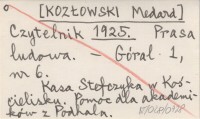 [KOZŁOWSKI Medard]
Czytelnik 1925. Prasa
ludowa. – Góral 1,
nr 6.
Kasa Stefczyka w Koś-
cielisku. Pomoc dla akademi-
ków z Podhala.